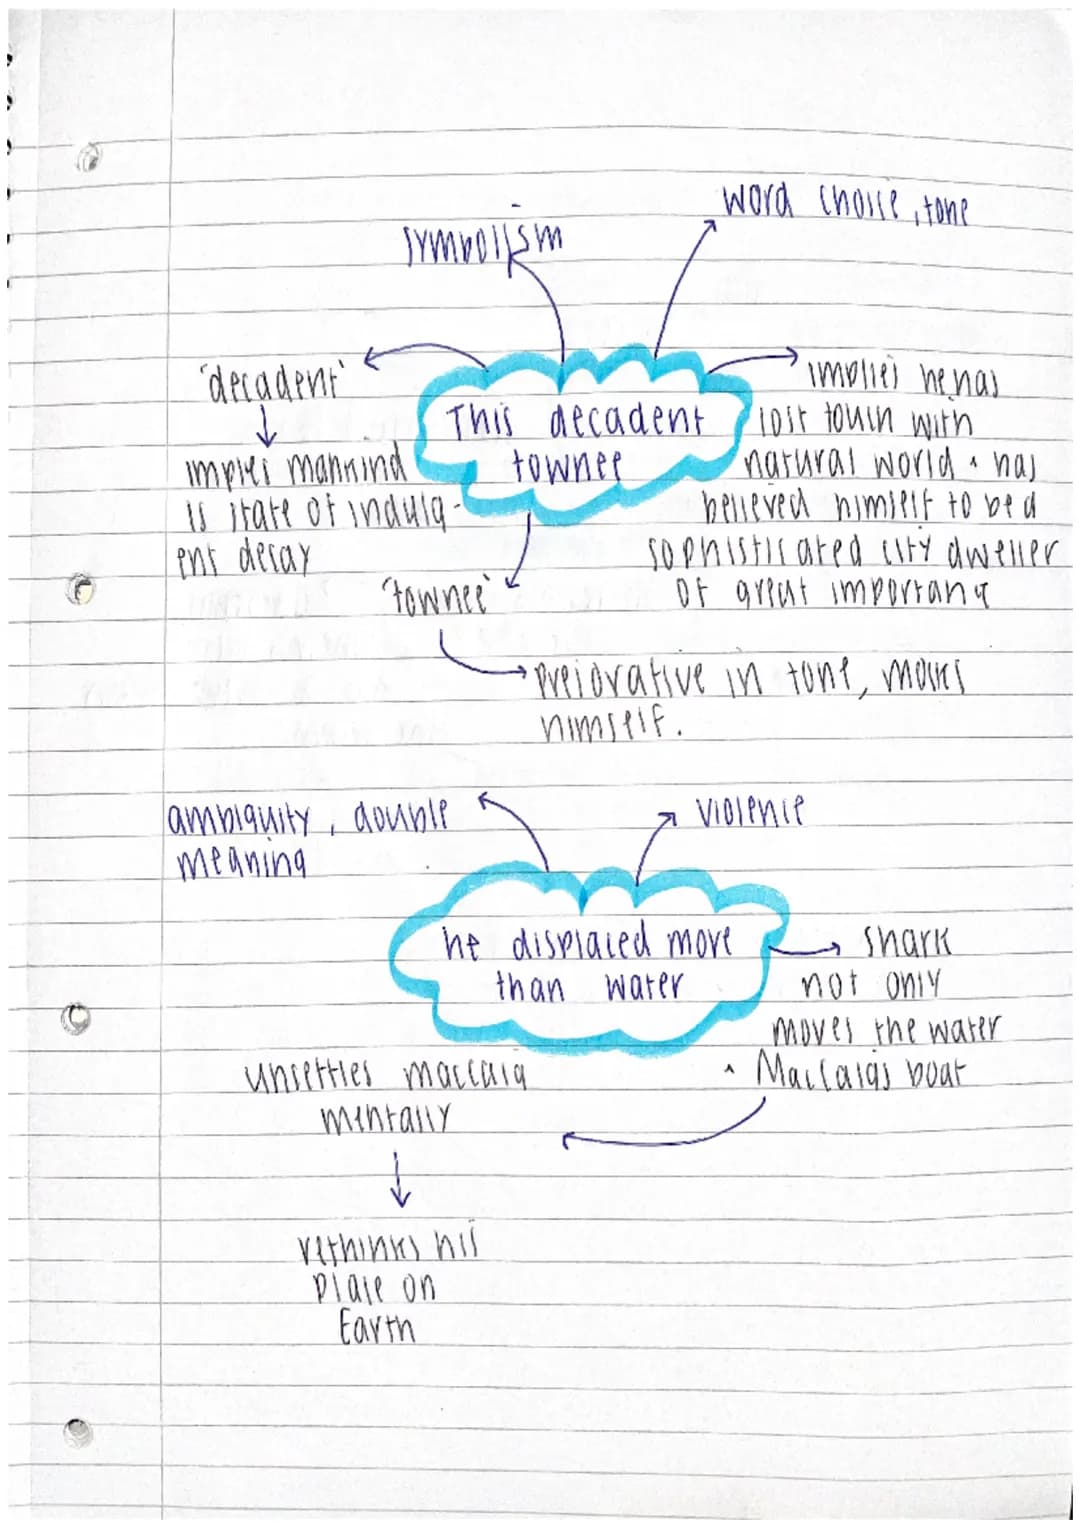 symbolism
word choice, tone
'decadent'
implies mankind
is state of indulg-
ent decay
This decadent
townee
implies he has
lost touch with
natural world & has
believed himself to be a
sophisticated city dweller
of great importance
'townee'
prejorative in tone, mocks
himself.
ambiquity, double
meaning
violence
he displaced more
than water
shark
not only
moves the water
& MacCaigs boat
unsettles maccaig
mentally
rethinks his
place on
Earth